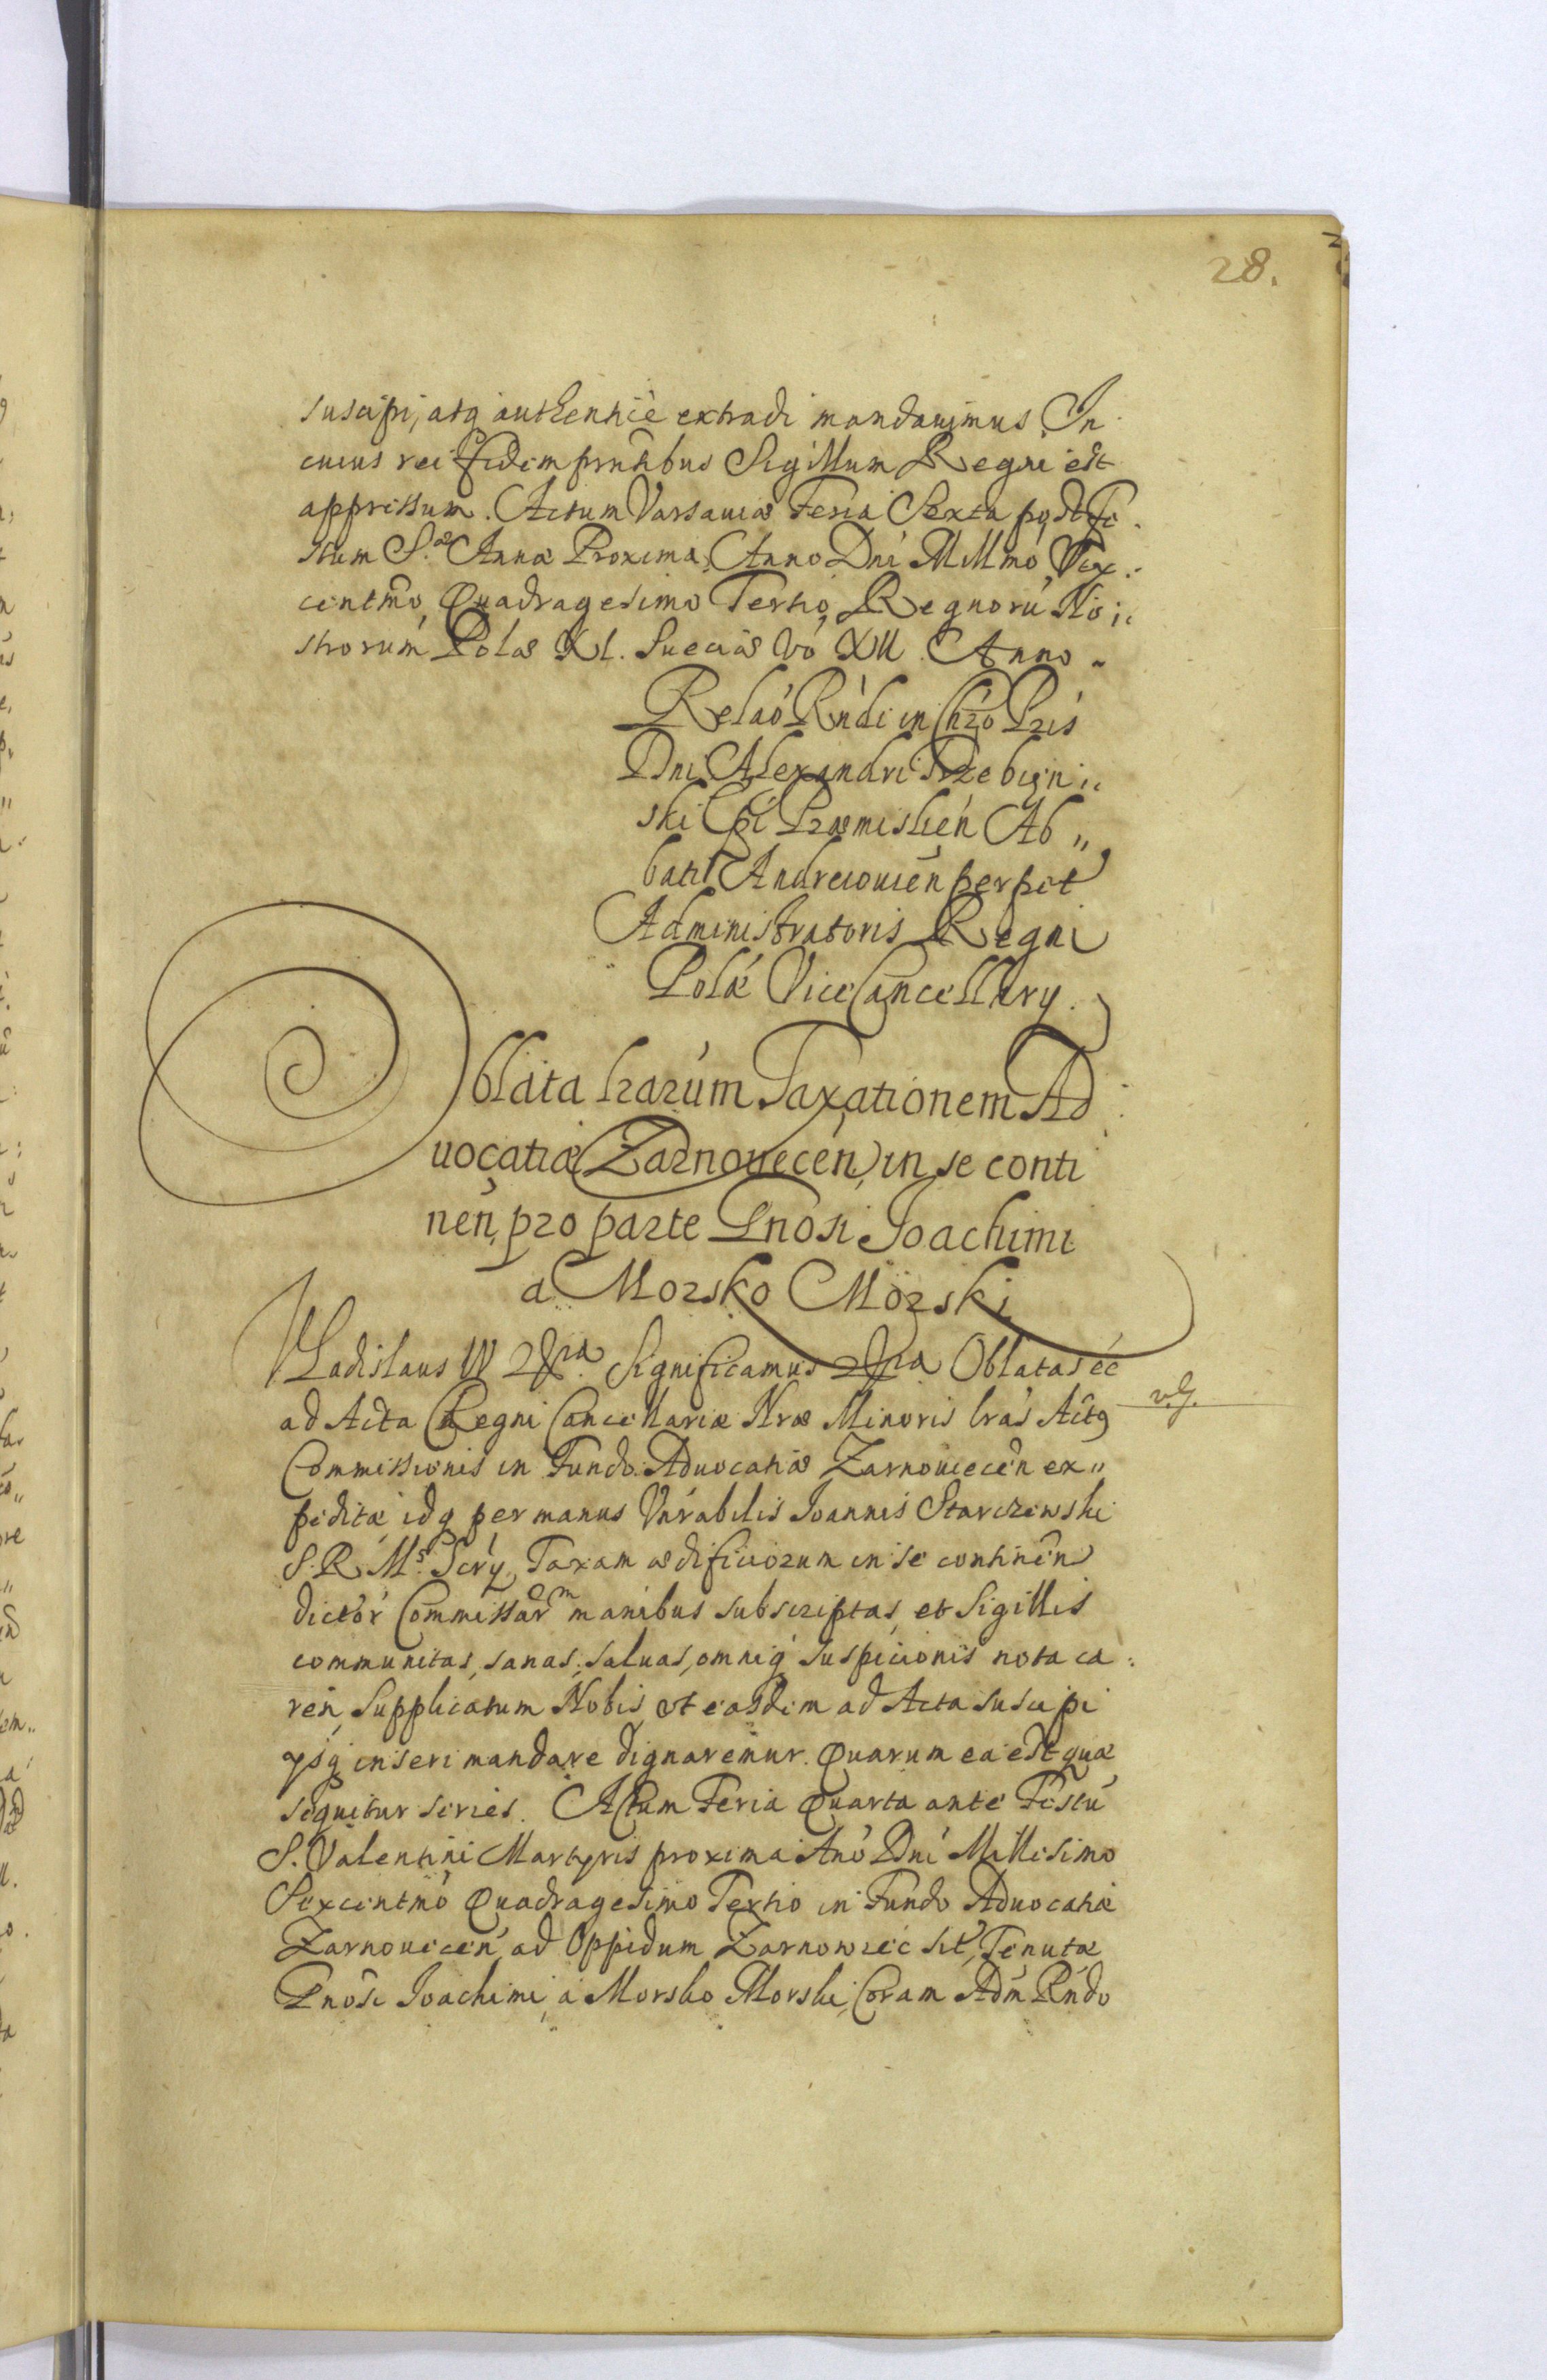 28.
suscipi, atq authenticè extradi mandavimus. In
cuius rei fidem prntibus Sigillum Regni est
appressum. Actum Varsaviæ Feria Sexta post Fe:
stum S.æ Annæ Proxima, Anno Dni Millmo, Sex:
centmo, Quadragesimo Tertio, Regnorú No:
strorum Polæ XI. Sueciæ vó XII. Anno.
Relaó Rndi in Chro Pris
Dni Alexandri Trzebiń:
ski Epi Præmislień Ab"
batis Andreiouień perpet
Administratoris Regni
Polæ ViceCancellarÿ.
Oblata lrarúm Taxationem Ad:
uocatiæ Zarnouecen, in se conti
nen, pro parte Gnosi Joachimi
a Morsko Morski
Vladislaus IV &ra. Significamus &ra Oblatas éc
ad Acta Regni Cancellariæ Nræ Minoris lrás Actq
Commissionis in Fundo Aduocatiæ Zarnouiecén ex"
peditæ, idq per manus Vnrabilis Joannis Starczewski
S. R. M.s Scrÿ, Taxam ædificiorum in se continén
dictór Commissarorm manibus subscriptas, et Sigillis
communitas, sanas, saluas, omniq suspicionis nota ca:
ren, Supplicatum Nobis, vt easdem ad Acta suscipi
ysq inseri mandare dignaremur. Quarum ea est quæ
sequitur series. Actum Feria Quarta ante Festú
S. Valentini Martyris proxima Anó Dni Millesimo
Sexcentmó Quadragesimo Tertio in Fundo Aduocatiæ
Zarnouecen, ad Oppidum Zarnowiec sit, Tenutæ
Gnósi Joachimi, a Morsko Morski, Coram Adm Rndo